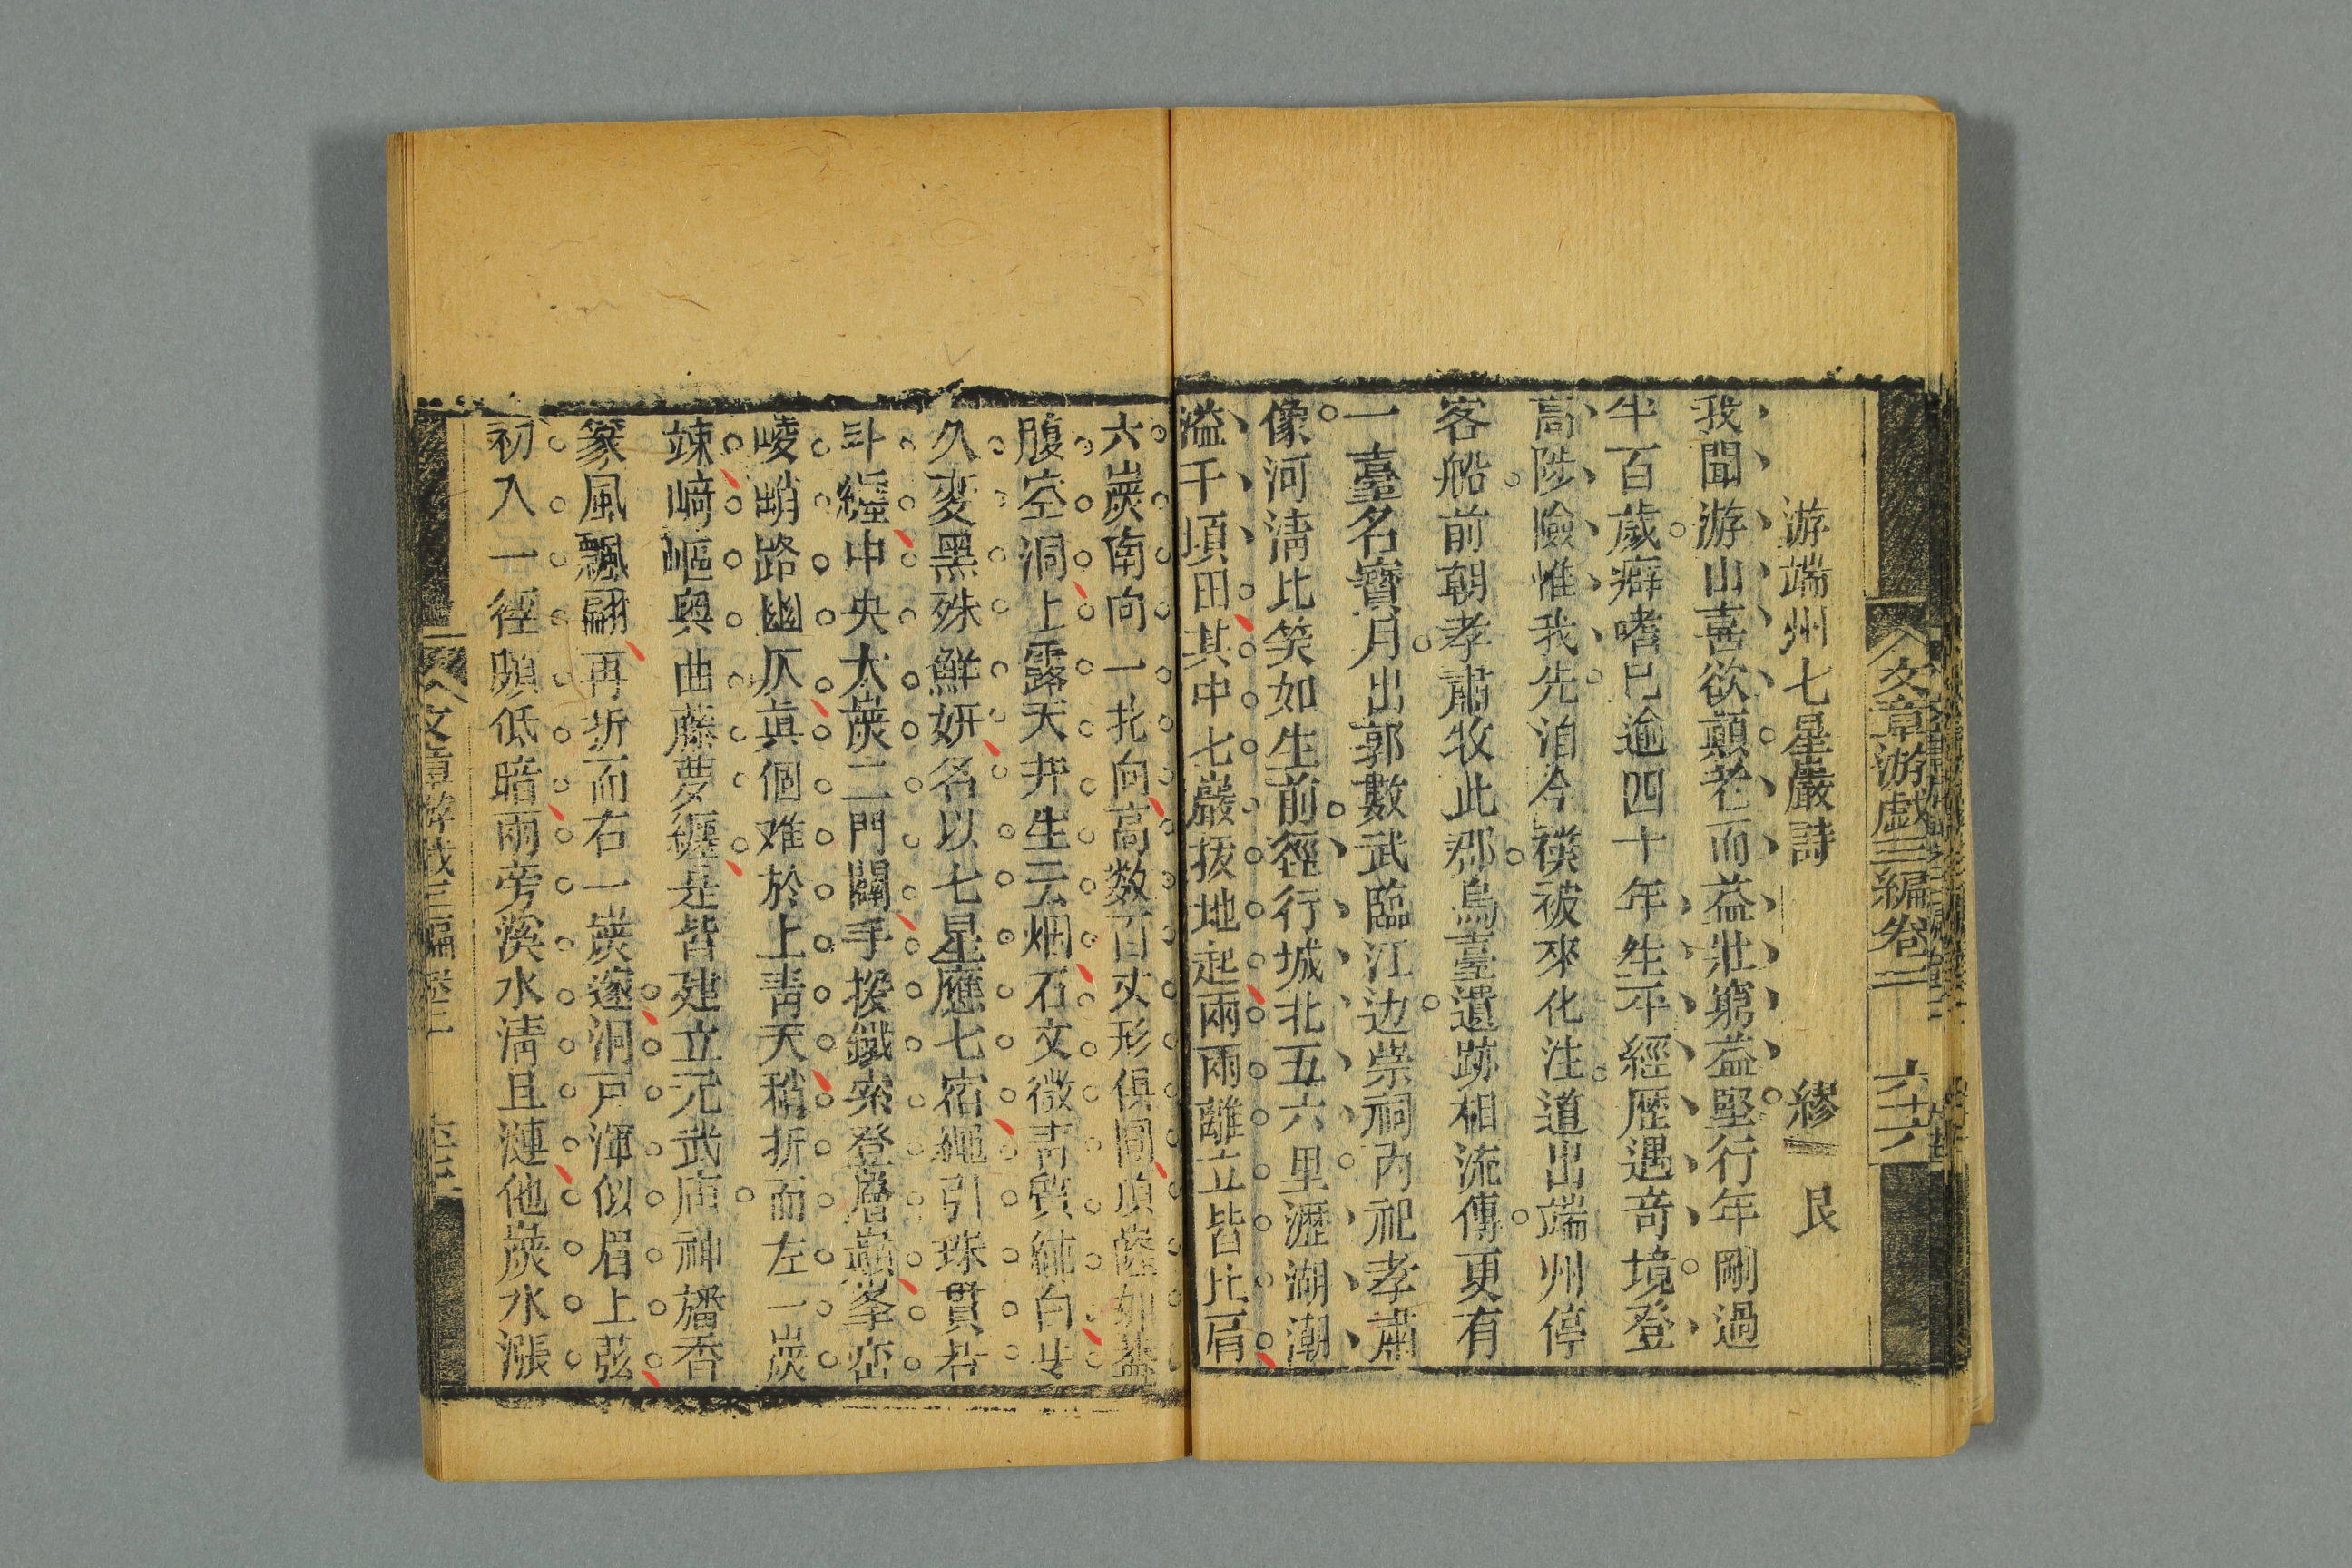 文章游戯三編卷二
六十六
游端州七星巖詩 繆艮
我聞游山喜欲顛老而益壯窮益堅行年剛過
半百歲癖嗜已逾四十年生平經歴遇竒境登
高陟險惟我先洎今襆被來化注道出端州停
客船前朝孝肅牧此郡烏臺遺跡相流傳更有
一臺名寳月出郭數武臨江边崇祠内祀孝肅
像河清比笑如生前徑行城北五六里瀝湖潮
溢千頃田其中七巖拔地起兩兩離立皆比肩
六岩南向一北向高数百丈形俱同頂蓬如葢
腹空洞上露天井生云烟石文微青質純白
久変黑殊鮮妍名以七星應七宿繩引珠貫若
斗纒中央大岩二門闢手援鐵索登層巔峯巒
崚峭路幽仄眞個难於上青天稍折而左一岩
竦﨑嶇奥曲藤蘿纒是皆建立元武庙神旛香
篆風飄翩再折而右一岩邃洞戸渾似眉上弦
初入一徑頗低暗兩旁溪水清且漣他岩水漲
文章游戯三編卷二